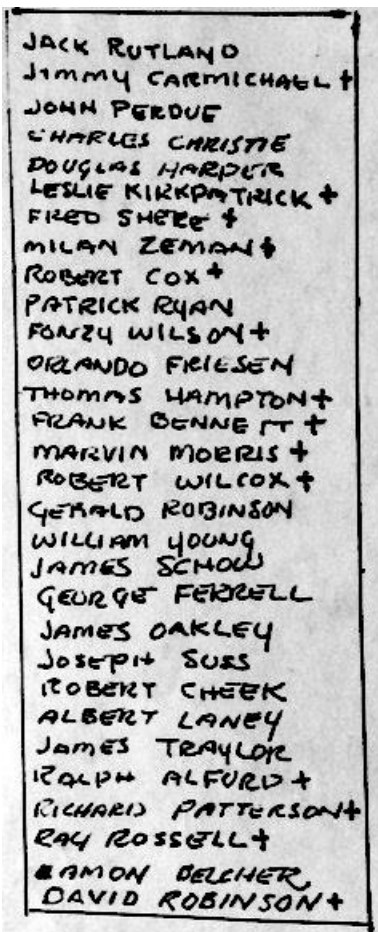 JACK RUTLAND
JIMMY CARMICHAEL +
JOHN PERDUE
CHARLES CHRISTIE
DOUGLAS HARPER
LESLIE KIRKPATRICK +
FRED SHERE +
MILAN ZEMAN +
ROBERT COX +
PATRICK RYAN
FONZY WILSON +
ORLANDO FRIESEN
THOMAS HAMPTON +
FRANK BENNETT +
MARVIN MORRIS +
ROBERT WILCOX +
GERALD ROBINSON
WILLIAM YOUNG
JAMES SCHOW
GEORGE FERRELL
JAMES OAKLEY
JOSEPH SUSS
ROBERT CHEEK
ALBERT LANEY
JAMES TRAYLOR
RALPH ALFURD +
RICHARD PATTERSON +
RAY ROSSELL +
RAMON BELCHER
DAVID ROBINSON +